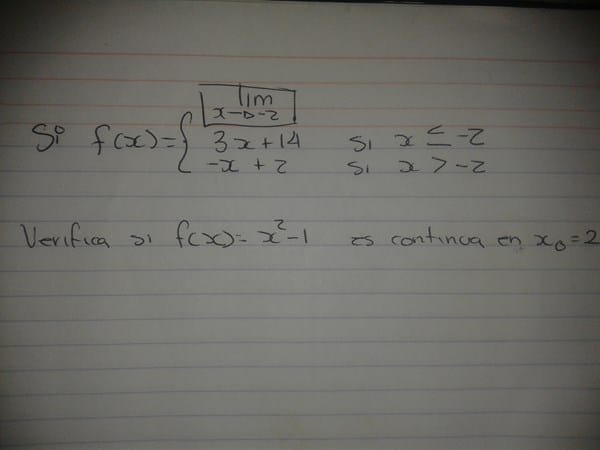 lim
x→-2
Si f(x)= { 3x+14 si x ≤ -2
-x+2 si x > -2
Verifica si f(x)= x²-1 es continua en x₀=2